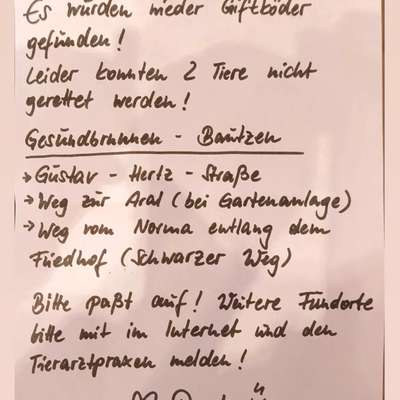 Es wurden wieder Giftköder
gefunden!
Leider konnten 2 Tiere nicht
gerettet werden!
Gesundbrunnen - Bautzen
→ Gustav - Hertz - Straße
→ Weg zur Aral (bei Gartenanlage)
→ Weg vom Norma entlang dem
Friedhof (Schwarzer Weg)
Bitte paßt auf! Weitere Fundorte
bitte mit im Internet und den
Tierarztpraxen melden!